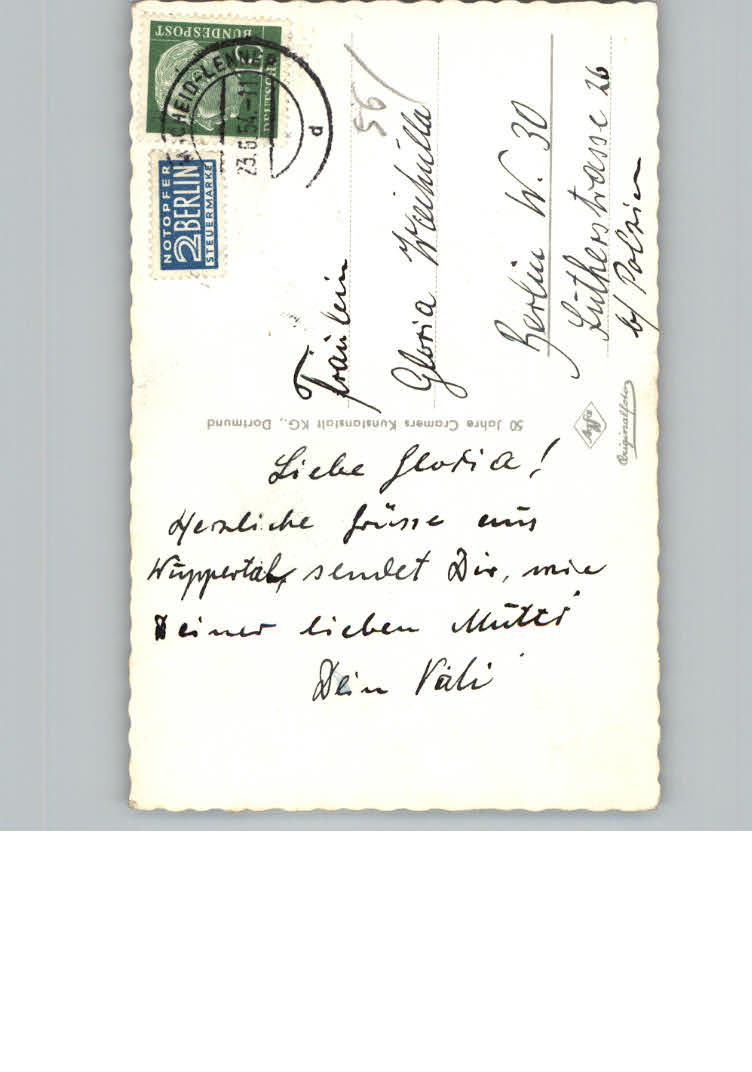 BUNDESPOST
SCHEID-LENNEP
23.6.54.-11
d
NOTOPFER
2 BERLIN
STEUERMARKE
56
Fräulein
Gloria
Berlin W. 30
Lutherstrasse 26
b/
50 Jahre Cramers Kunstanstalt KG., Dortmund
Agfa
Originalfoto
Liebe Gloria!
Herzliche Grüsse aus
Wuppertal, sendet Dir, wie
Deiner lieben Mutti
Dein Vati